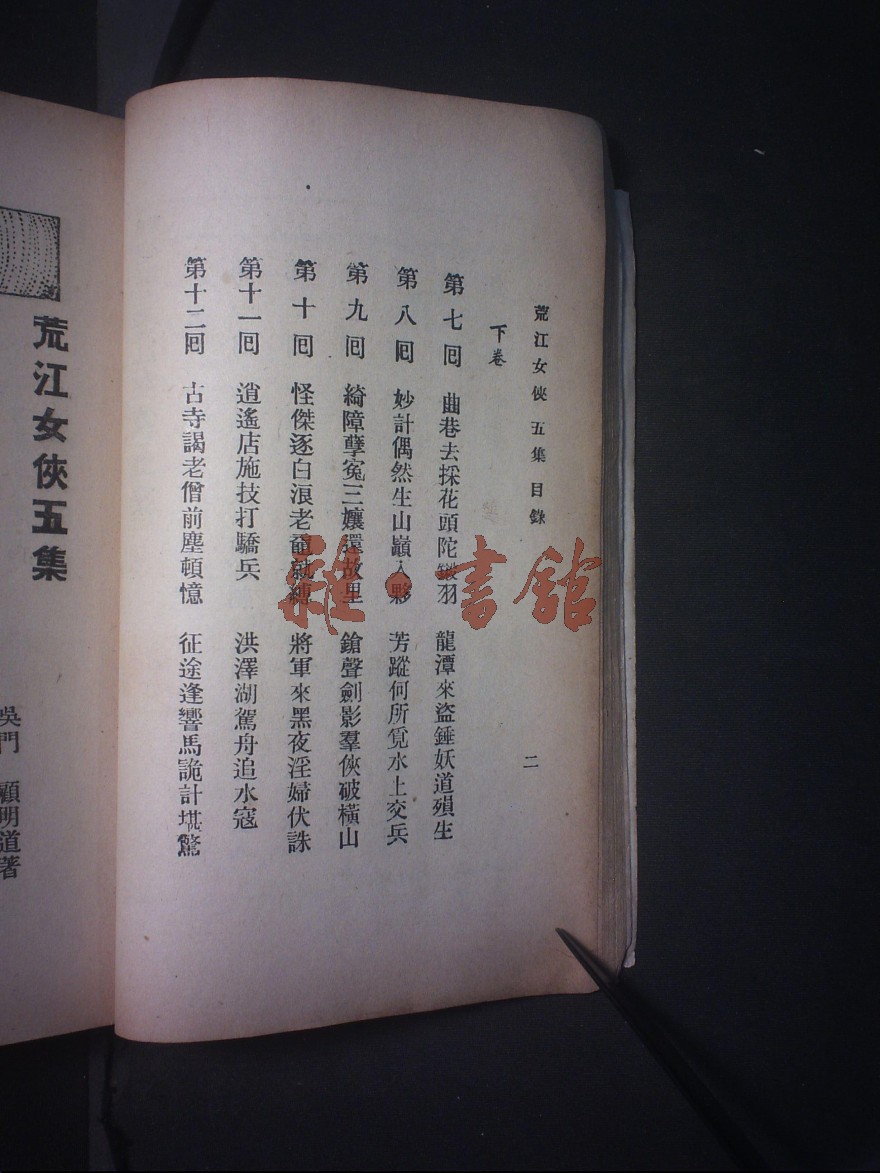 荒江女俠 五集 目錄
二
下卷
第七回 曲巷去採花頭陀鎩羽 龍潭來盜錘妖道殞生
第八回 妙計偶然生山巔入夥 芳蹤何所覓水上交兵
第九回 綺障孽冤三孃還故里 鎗聲劍影羣俠破橫山
第十回 怪傑逐白浪老黿就縛 將軍來黑夜淫婦伏誅
第十一回 逍遙店施技打驕兵 洪澤湖駕舟追水寇
第十二回 古寺謁老僧前塵頓憶 征途逢響馬詭計堪驚
荒江女俠五集
吳門 顧明道著
雜·書館